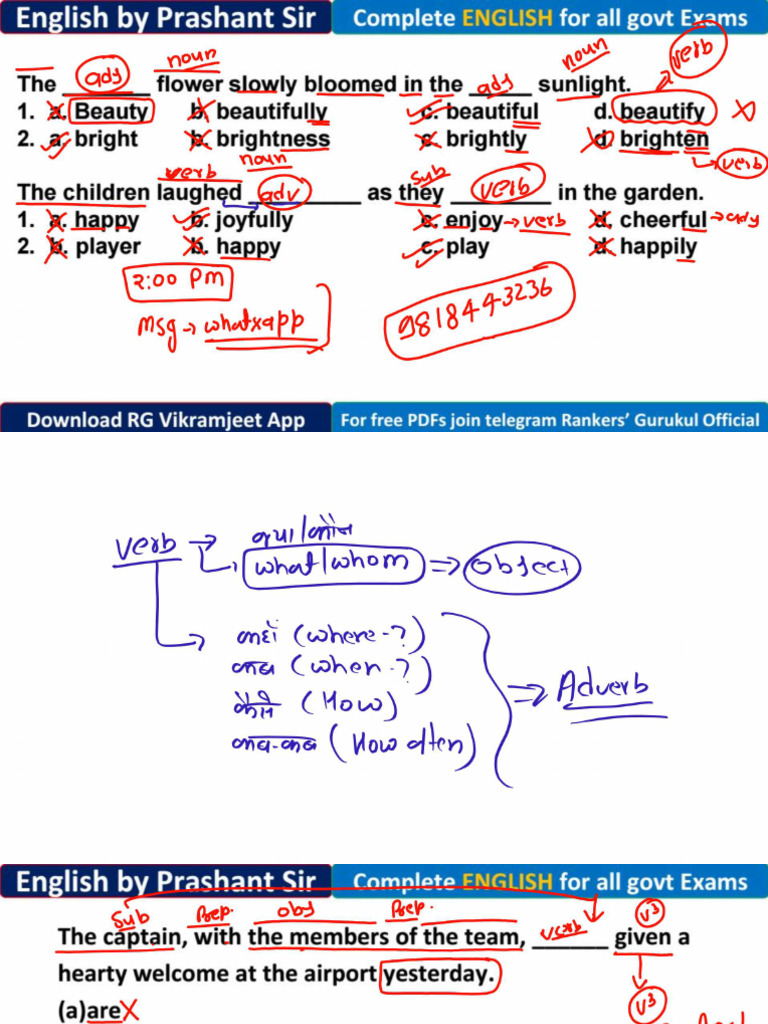 English by Prashant Sir Complete ENGLISH for all govt Exams
noun noun verb
The ______ adj flower slowly bloomed in the adj ______ sunlight.
1. a. Beauty b. beautifully c. beautiful d. beautify
2. a. bright b. brightness c. brightly d. brighten
verb
verb noun sub
The children laughed adv ______ as they verb ______ in the garden.
1. a. happy b. joyfully c. enjoy → verb d. cheerful → adj
2. b. player b. happy c. play d. happily
2:00 PM
msg → whatxapp 9818443236
Download RG Vikramjeet App For free PDFs join telegram Rankers' Gurukul Official
verb → क्या/कौन
what/whom ⇒ object
कहाँ (where-?)
कब (when-?)
कैसे (How)
कब-कब (How often)
⇒ Adverb
English by Prashant Sir Complete ENGLISH for all govt Exams
Sub Prep. obj Prep. verb v3
The captain, with the members of the team, ______ given a
hearty welcome at the airport yesterday.
(a)are v3